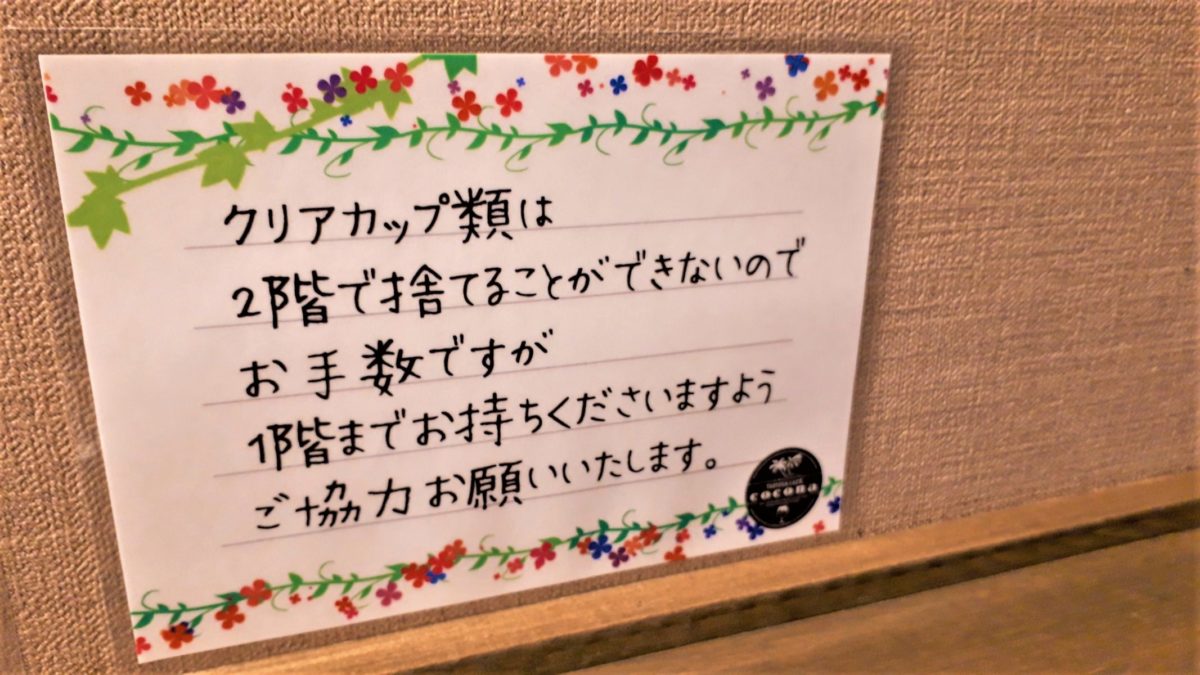 クリアカップ類は
2階で捨てることができないので
お手数ですが
1階までお持ちくださいますよう
ご協力お願いいたします。
cocona